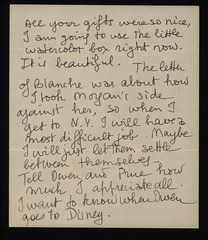 All your gifts were so nice,
I am going to use the little
watercolor box right now.
It is beautiful. The letter
of Blanche was about how
I took Morgan's side
against her, so when I
get to N.Y. I will have a
most difficult job. Maybe
I will just let them settle
between themselves
Tell Owen and Prue how
much I appreciate all.
I want to know when Owen
goes to Disney.